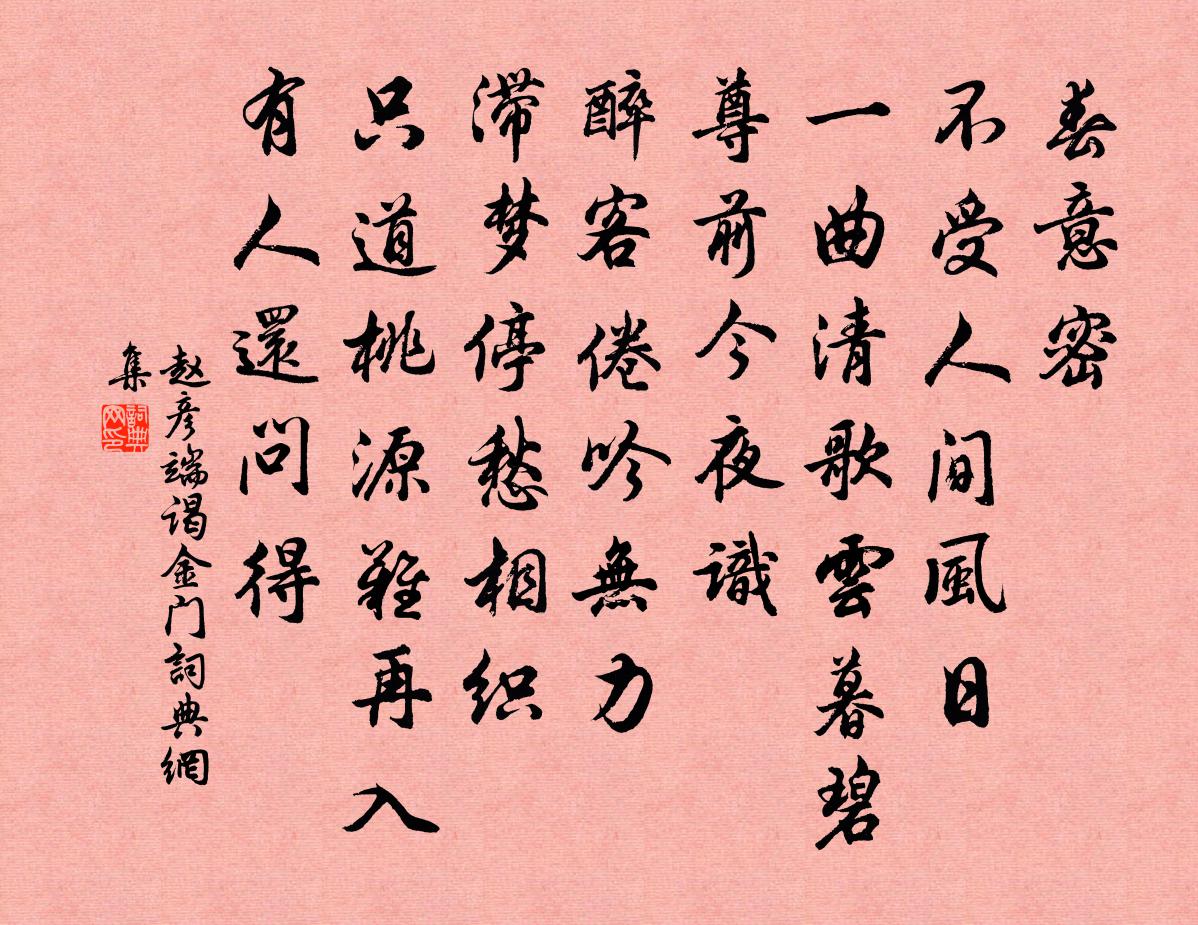 春意密
不受人间風日
一曲清歌雲暮碧
尊前今夜識
醉客倦吟無力
滞梦停愁相织
只道桃源難再入
有人還問得
赵彦端谒金门詞典網
集
詞典网印